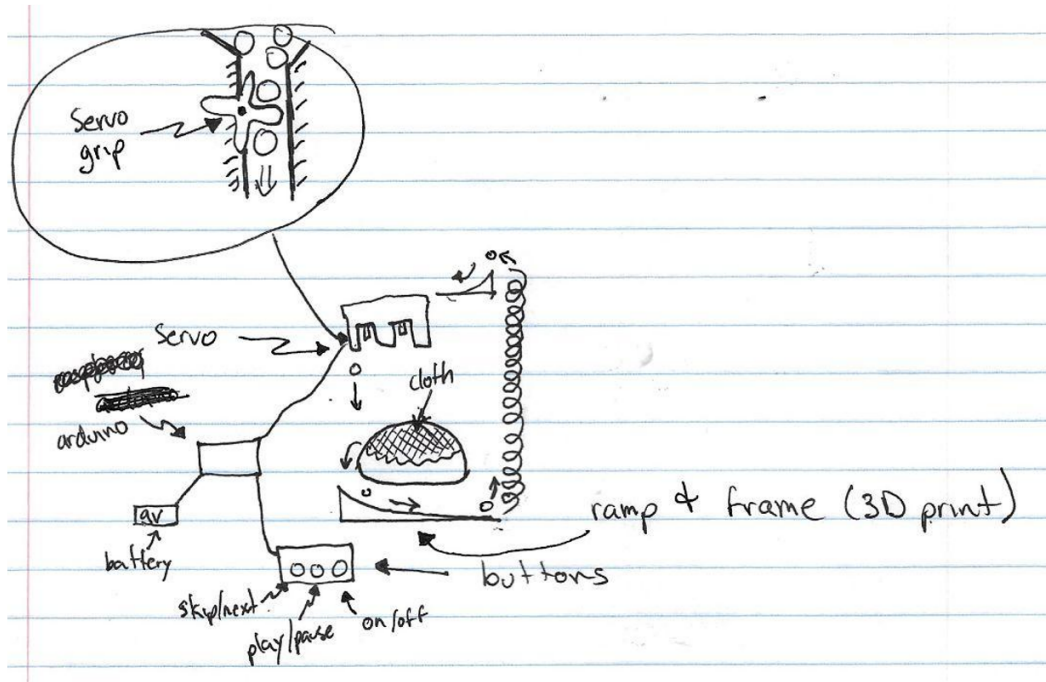 Servo
grip
Servo
cloth
arduino
9V
battery
ramp & frame (3D print)
buttons
skip/next
play/pause
on/off